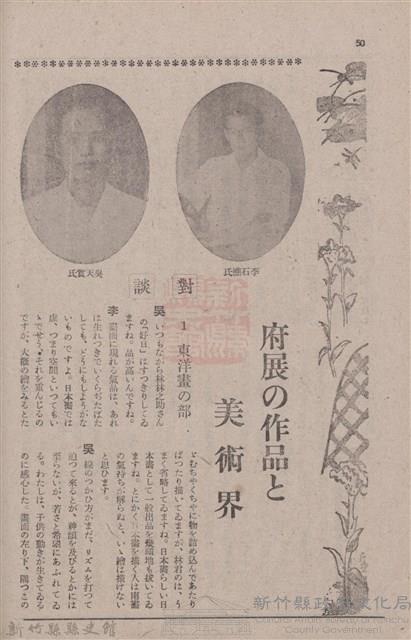 50
李石樵氏
吳天賞氏
府展の作品と
美術界
對談
1 東洋畫の部
吳 いつもながら林林之助さん
の「好日」はすつきりしてゐ
ますね。品が高いんですね。
李 畫面に現れる氣品は、あれ
は生れつきでいくらぢたばた
しても、どうにもしようがな
いものですよ。日本畫では
虛、つまり空間といつてもい
ゝでせう。それを重んじるの
ですが、大概の繪をみると
むちやくちやに物を詰め込んであたり
ばつたり描いてゐますが、林君のは、う
まく省略してゐますね。日本畫らしい日
本畫として一般出品を幾頭地も拔いてゐ
ますね。とにかく日本畫を描く人は南畫
の氣持が解らぬと、いゝ繪は描けない
と思ひます。
吳 線のつかひ方がまだ、リズムを打つて
迫つて來るとか、神韻を及びるとかには
至らないが、若さと希望にあふれてゐ
る。わたしは、子供の動きが生きてゐる
のに感心した。畫面の左り下、隅つこの
新竹縣政府文化局
County Government
新竹縣縣史館